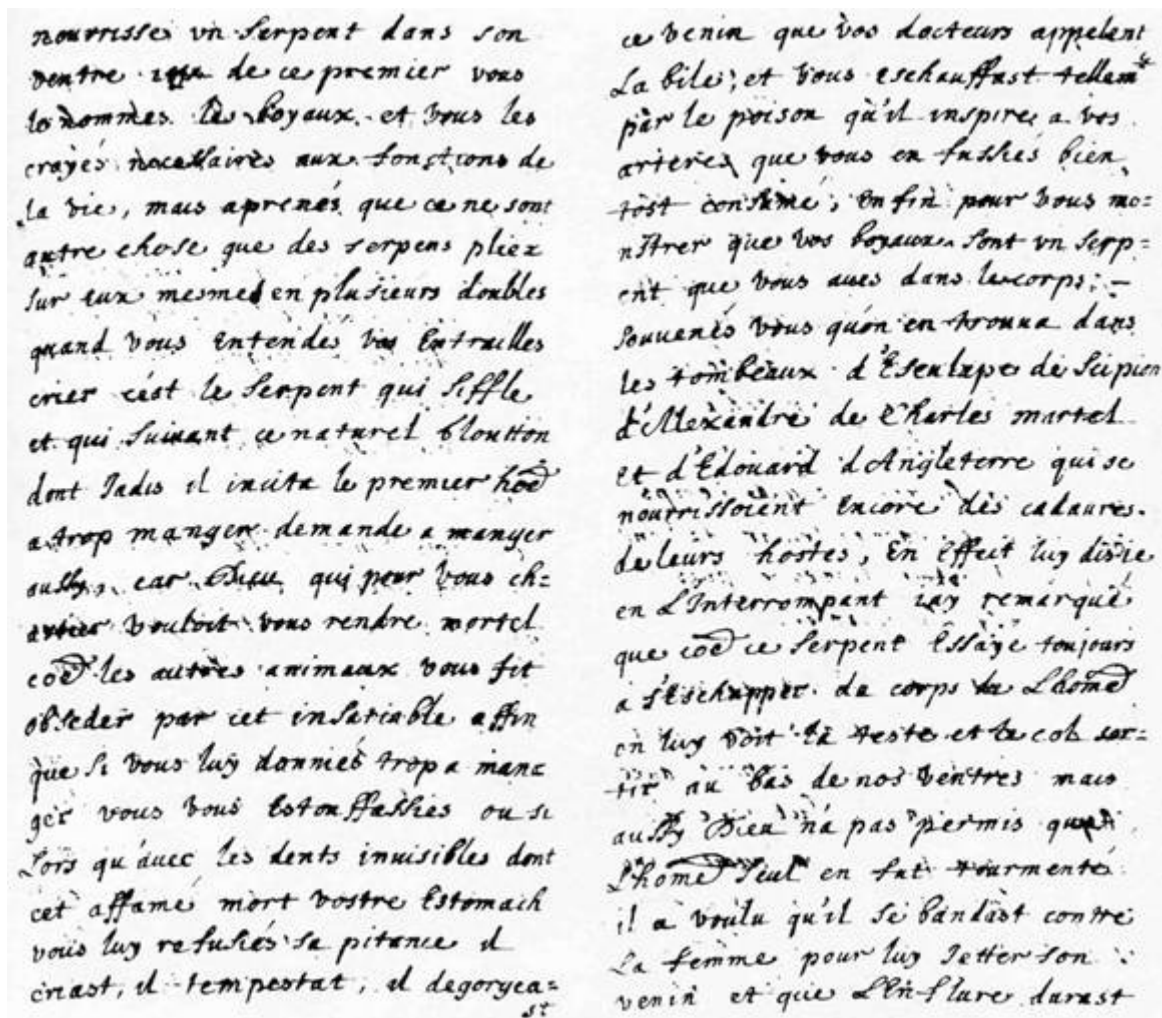 nourrisse vn serpent dans son
ventre de ce premier vous
le nommes les boyaux et vous les
croyés necessaires aux fonctions de
la vie, mais aprenés que ce ne sont
autre chose que des serpens pliez
sur eux mesmes en plusieurs doubles
quand vous entendes vos Entrailles
crier cést le serpent qui siffle
et qui suivant ce naturel
dont Jadis il incita le premier hoē
a trop manger demande a manger
aussy, car Dieu qui pour vous ch=
astier vouloit vous rendre mortel
coē les autres animaux vous fit
obseder par cet insatiable affin
que si vous luy donniés trop a man=
ger vous vous Estouffassies ou si
Lors qu'auec les dents inuisibles dont
cet affamé mort vostre Estomach
vous luy refusiés sa pitance il
criast, il tempestat, il degorgea=
st
ce venin que vos docteurs appelent
La bile; et vous eschauffast tellem^t
par le poison qu'il inspire a vos
arteres que vous en fussiés bien
tost consumé; Enfin pour vous mo=
nstrer que vos boyaux sont vn serp=
ent que vous aues dans le corps; –
souuenés vous quón en trouua dans
les tombeaux d'Esculape de Scipion
d'Alexandre de Charles martel
et d'Edouard d'Angleterre qui se
nourrissoient Encore des cadaures
de leurs hostes, En effect luy dis ie
en L'Interrompant iay remarqué
que coē ce serpent Essaye toujours
a s'Eschapper du corps de Lhomē
on luy voit la teste et le col sor=
tir au bas de nos ventres mais
aussy Dieu ná pas permis que
Lhomē seul en fut tourmenté
il a voulu qu'il se bandast contre
La femme pour luy Jetter son
venin et que L'Enflure durast